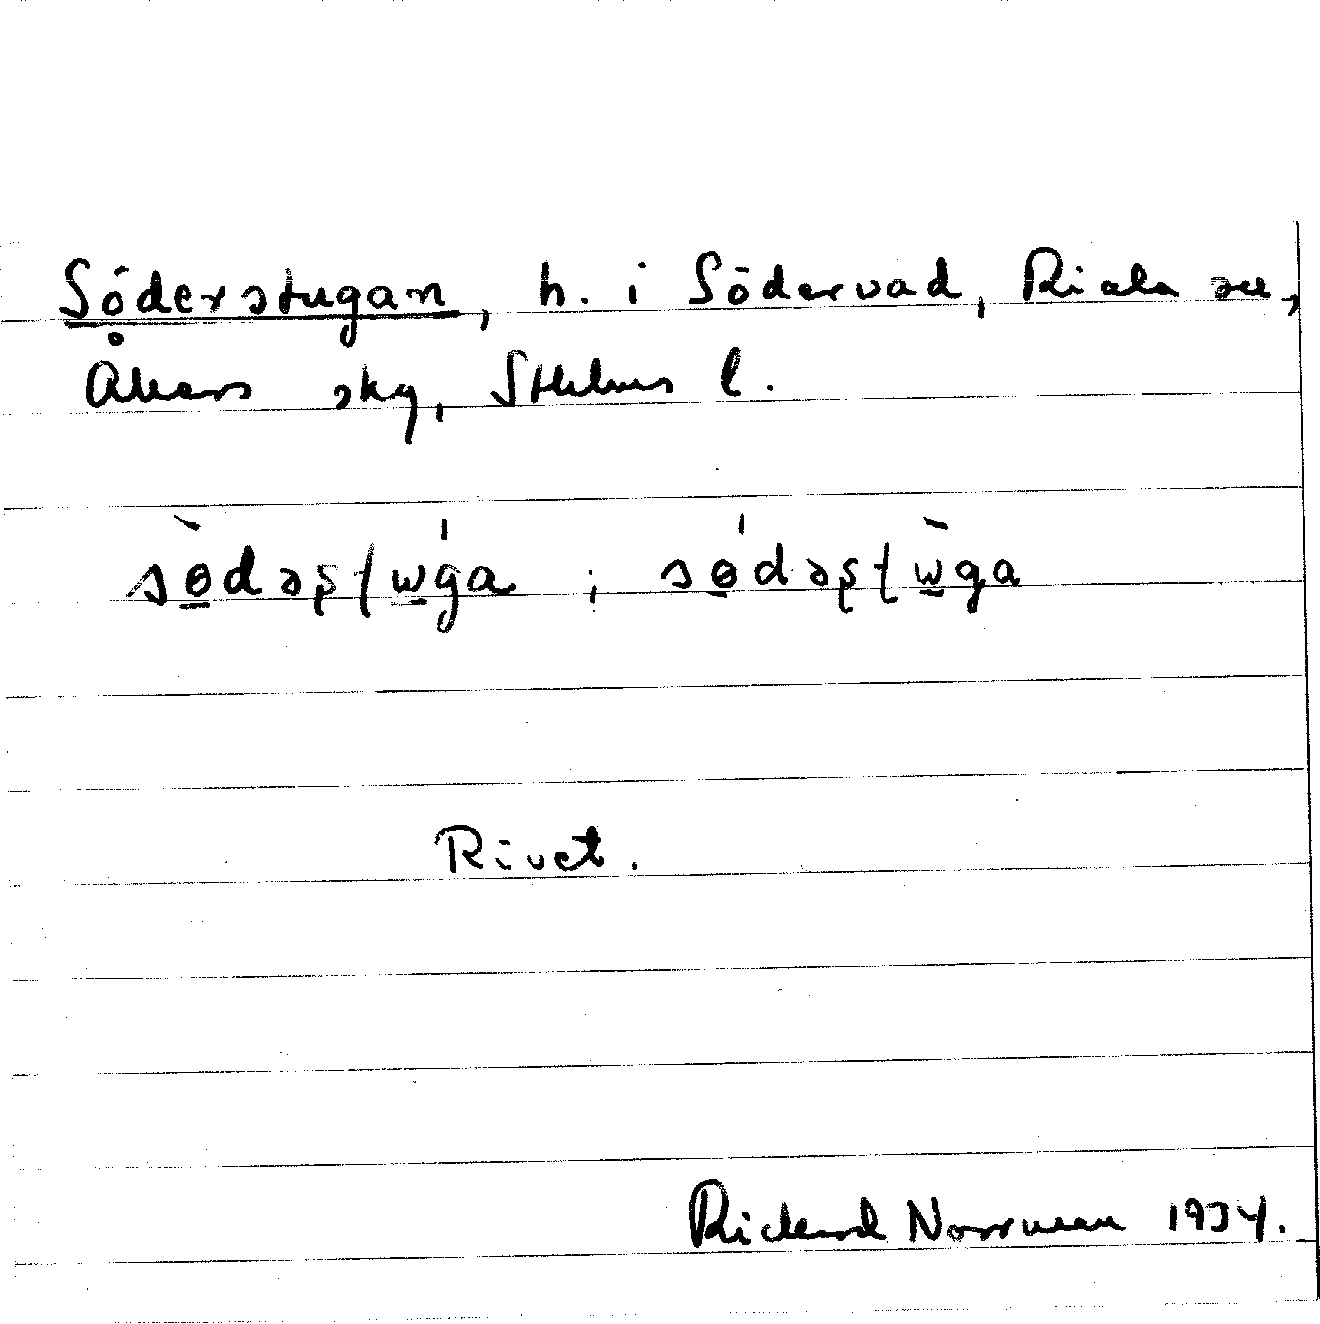 Söderstugan, h. i Södervad, Riala sn,
Åkers skg, Sthlms l.
sɵ̀dəʂtɯ́ga ; sɵ́dəʂtɯ̀ga
Rivet.
Rickard Norrman 1934.